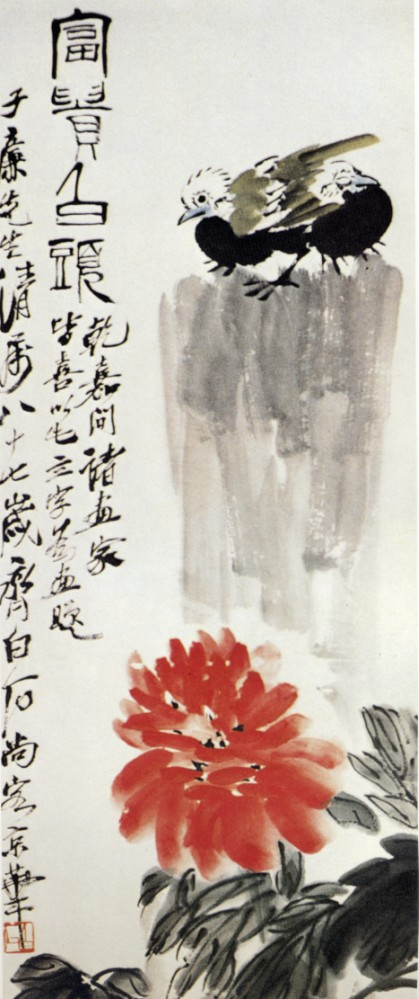 富貴白頭
乾嘉間諸画家
皆喜以此字為画題
子廉先生清屬八十七歲齊白石尚客京華